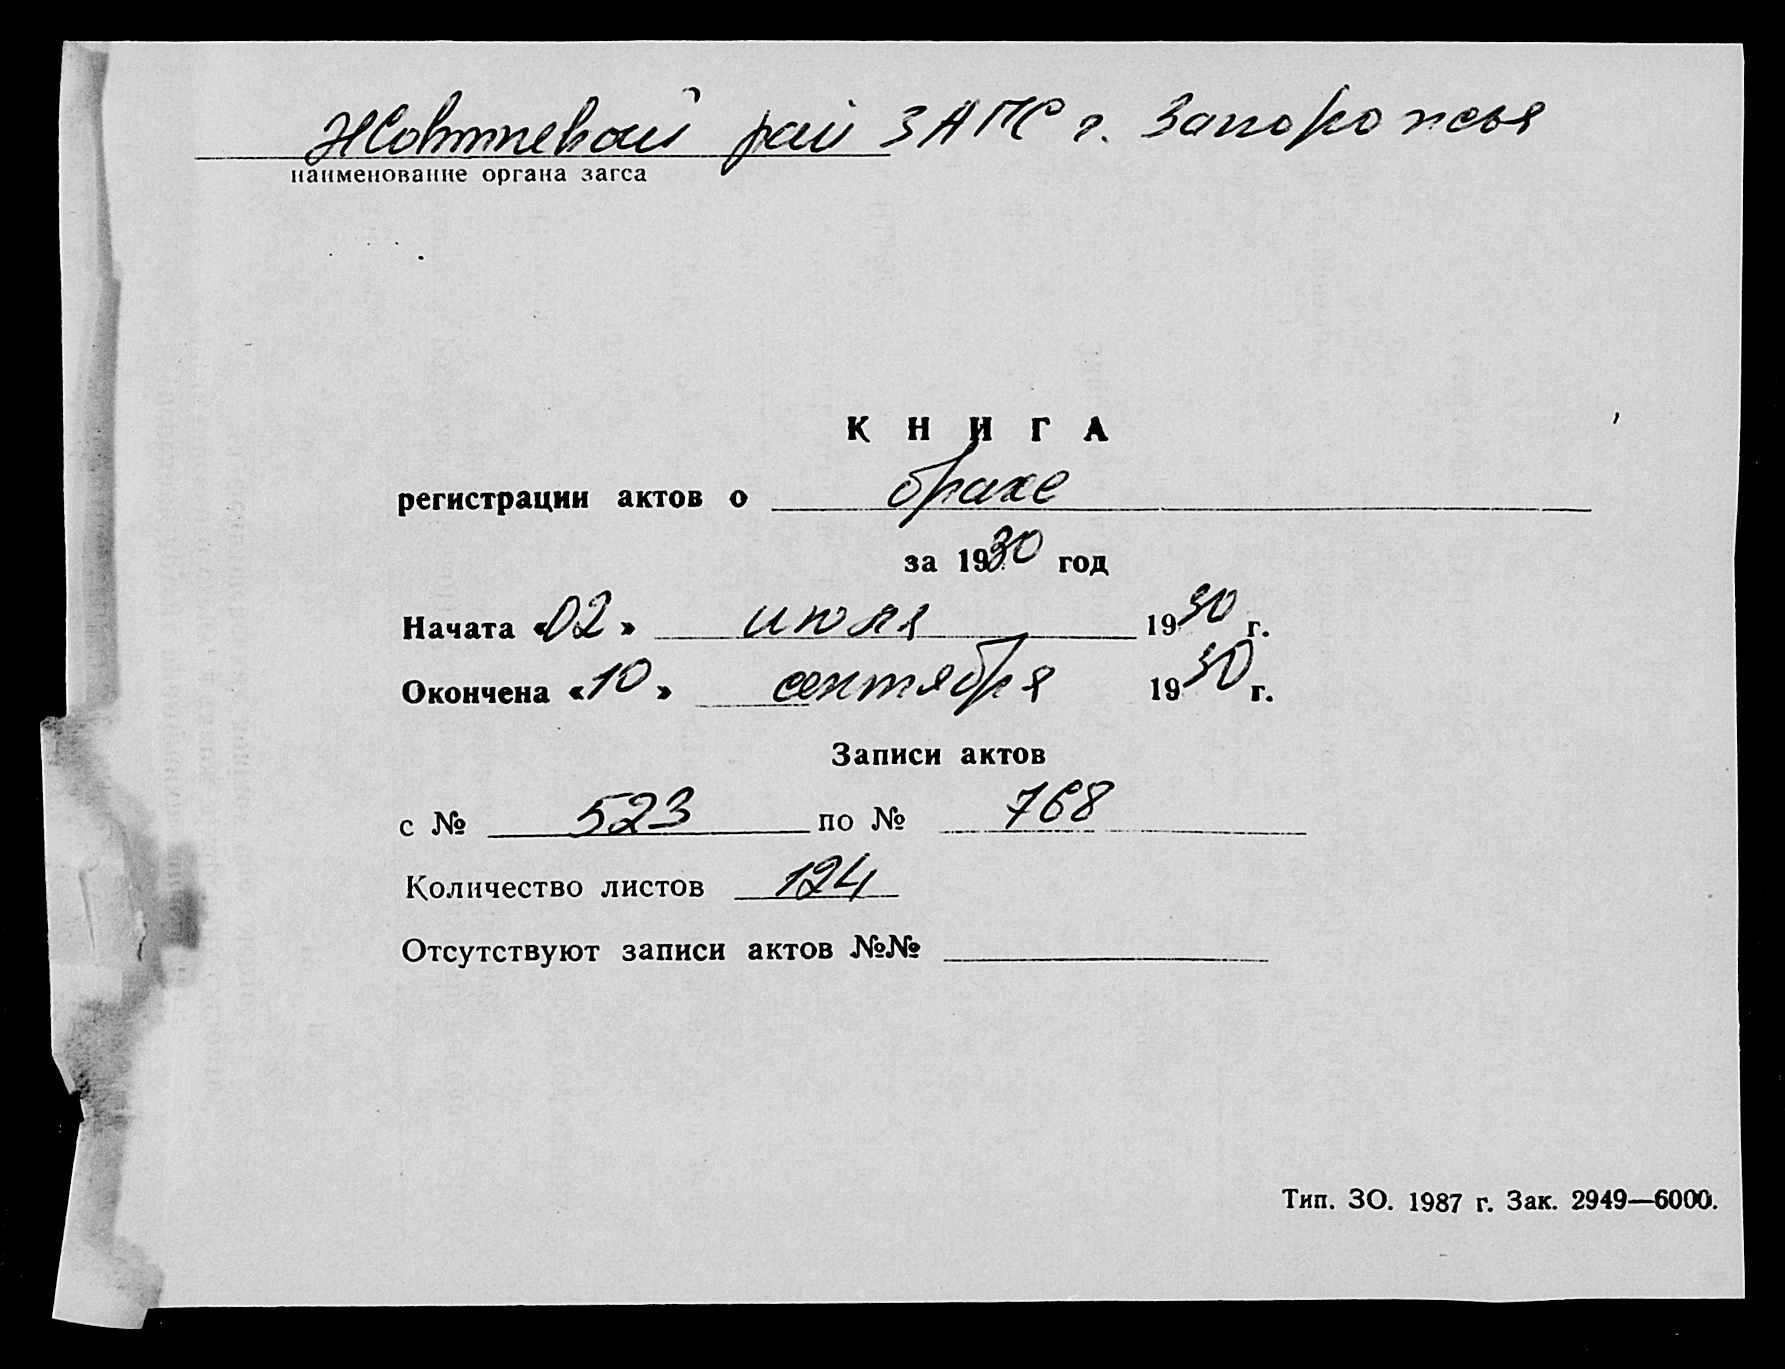 Жовтневой рай ЗАГС г. Запорожья
наименование органа загса
КНИГА
регистрации актов о браке
за 1930 год
Начата «02» июля 1930 г.
Окончена «10» сентября 1930 г.
Записи актов
с № 523 по № 768
Количество листов 124
Отсутствуют записи актов №№
Тип. ЗО. 1987 г. Зак. 2949—6000.